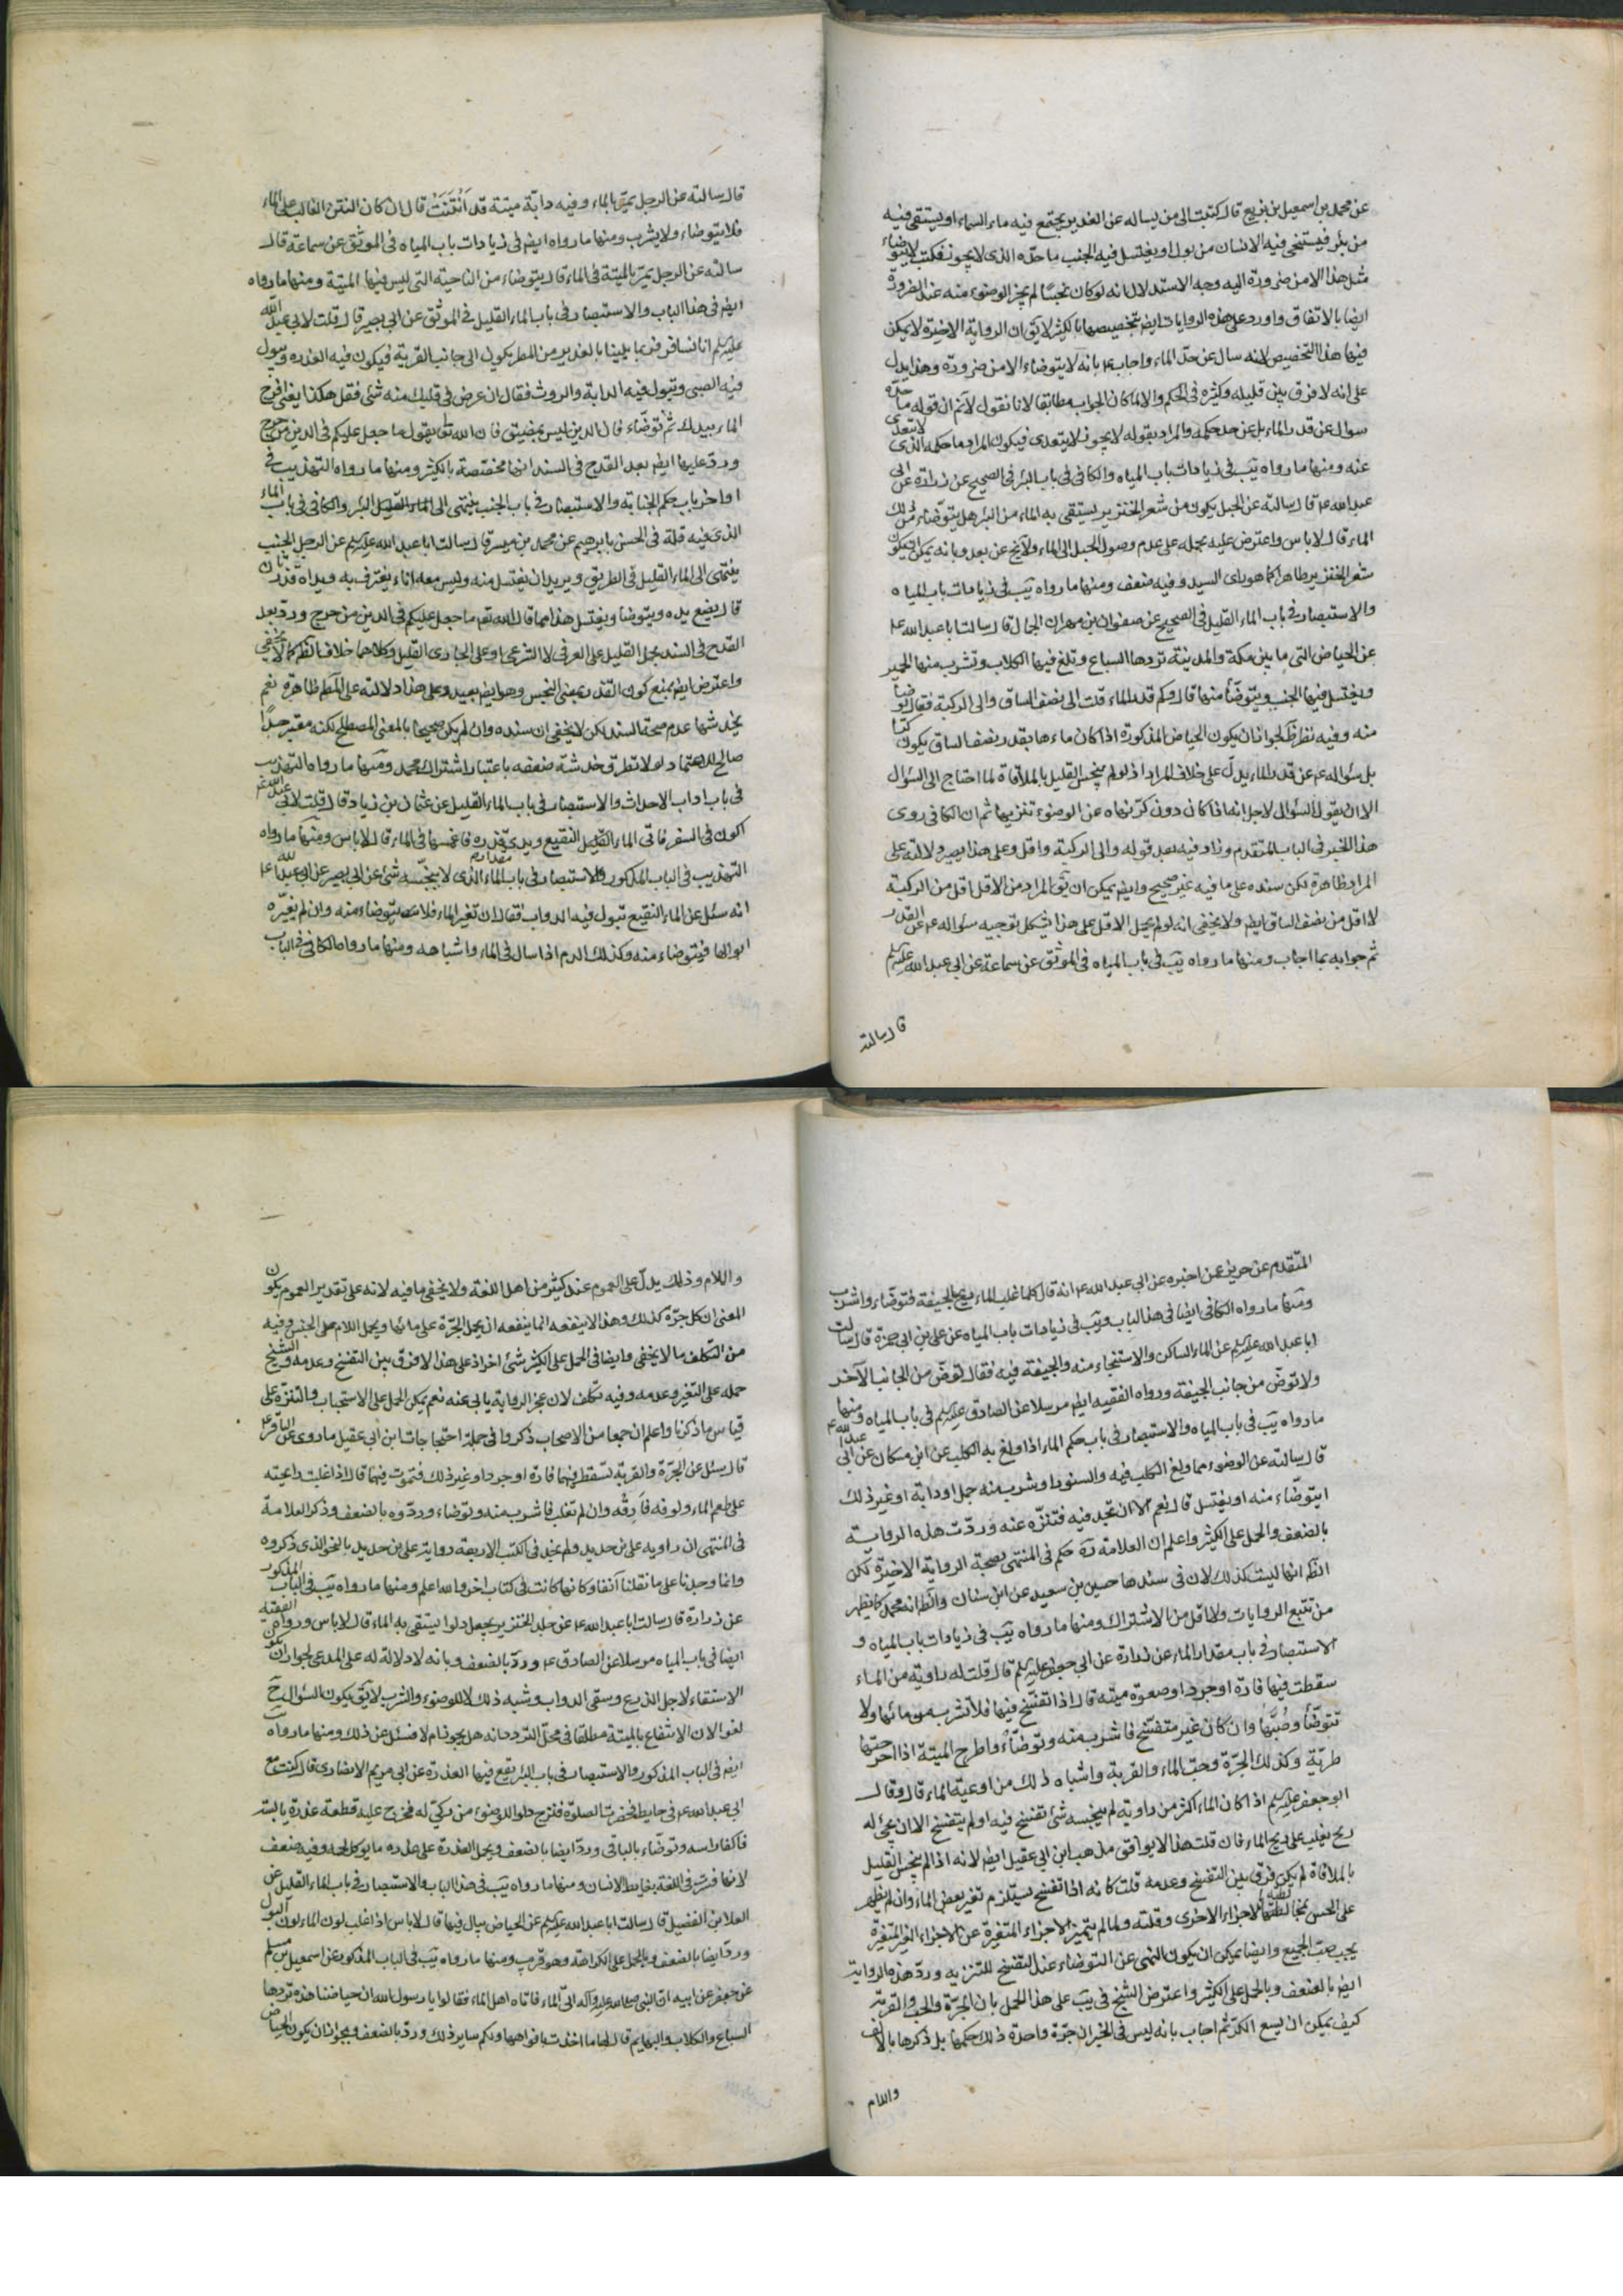 عن محمد بن اسمعيل بن بزيع قال كتبت الى من يساله عن الغدير يجتمع فيه ماء السماء او يستقى فيه
من بئر فيستنجى فيه الانسان من بول او يغتسل فيه الجنب ما حده الذى لا يجوز فكتب لا يتوضاء
مثل هذا الا من ضرورة اليه وجه الاستدلال انه لو كان نجسًا لم يجز الوضوء منه عند الضرورة
ايضا بالاتفاق واورد على هذه الروايات ايضا بتخصيصها بالكثير لا يق ان الرواية الاخيرة لا يمكن
فيها هذا التخصيص لانه سال عن حد الماء واجاب ع بانه لا يتوضاء الا من ضرورة وهذا يدل
على انه لا فرق بين قليله وكثيره فى الحكم والا لما كان الجواب مطابقا لانا نقول لا نم ان قوله ما حده
سوال عن قدر الماء بل عن حد حكمه والمراد بقوله لا يجوز لا يتعدى فيكون المراد ما حكمه الذى لا يتعدى
عنه ومنها ما رواه يب فى زيادات باب المياه والكافى فى باب البئر فى الصحيح عن زرارة عن ابى
عبد الله ع قال سالته عن الحبل يكون من شعر الخنزير يستقى به الماء من البئر هل يتوضاء من ذلك
الماء قال لا باس واعترض عليه بحمله على عدم وصول الحبل الى الماء ولا يخ عن بعد وبانه يمكن ان يكون
شعر الخنزير طاهرا كما هو راى السيد وفيه ضعف ومنها ما رواه يب فى زيادات باب المياه
والاستبصار فى باب الماء القليل فى الصحيح عن صفوان بن مهران الجمال قال سالت ابا عبد الله ع
عن الحياض التى ما بين مكة والمدينة تردها السباع وتلغ فيها الكلاب وتشرب منها الحمير
ويغتسل فيها الجنب ويتوضأ منها قال وكم قدر الماء قلت الى نصف الساق والى الركبة فقال توضأ
منه وفيه نظر لجواز ان يكون الحياض المذكورة اذا كان ماءها بقدر نصف الساق يكون كرًا
بل سؤاله ع عن قدر الماء يدل على خلاف المراد اذ لو لم ينجس القليل بالملاقاة لما احتاج الى السؤال
الا ان يقول السؤال لاجل انه اذا كان دون كر نهاه عن الوضوء تنزيها ثم ان الكافى روى
هذا الخبر فى الباب المتقدم وزاد فيه بعد قوله والى الركبة واقل وعلى هذا يصير دلالته على
المراد ظاهرة لكن سنده على ما فيه غير صحيح وايضا يمكن ان يق المراد من الاقل اقل من الركبة
لا اقل من نصف الساق ايضا ولا يخفى انه لو لم يحمل الاقل على هذا يشكل توجيه سؤاله ع عن القدر
ثم جوابه بما اجاب ومنها ما رواه يب فى باب المياه فى الموثق عن سماعة عن ابى عبد الله عليه السلم
قال سالته
قال سالته عن الرجل يمر بالماء وفيه دابة ميتة قد اَنْتَنَتْ قال ان كان النتن الغالب على الماء
فلا يتوضاء ولا يشرب ومنها ما رواه ايضا فى زيادات باب المياه فى الموثق عن سماعة قال
سالته عن الرجل يمر بالميتة فى الماء قال يتوضاء من الناحية التى ليس فيها الميتة ومنها ما رواه
ايضا فى هذا الباب والاستبصار فى باب الماء القليل فى الموثق عن ابى بصير قال قلت لابى عبد الله
عليه السلم انا نسافر فربما بلينا بالغدير من المطر يكون الى جانب القرية فيكون فيه العذرة ويبول
فيه الصبى وتبول فيه الدابة والروث فقال ان عرض فى قلبك منه شئ فقل هكذا يعنى افرج
الماء بيدك ثم توضاء فان الدين ليس بمضيق فان الله تعالى يقول ما جعل عليكم فى الدين من حرج
ورد عليها ايضا بعد القدح فى السند انها مختصة بالكثير ومنها ما رواه التهذيب فى
اواخر باب حكم الجنابة والاستبصار فى باب الجنب ينتهى الى البئر والكافى فى باب الماء
الذى فيه قلة فى الحسن بابرهيم عن محمد بن ميسر قال سالت ابا عبد الله عليه السلم عن الرجل الجنب
ينتهى الى الماء القليل فى الطريق ويريد ان يغتسل منه وليس معه اناء يغترف به ويداه قذرتان
قال يضع يده ويتوضا ويغتسل هذا مما قال الله تعالى ما جعل عليكم فى الدين من حرج ورد بعد
القدح فى السند بحمل القليل على العرفى لا الشرعى او على الجارى القليل وكلاهما خلاف الظم كما لا يخفى
واعترض ايضا بمنع كون القذر بمعنى النجس وهو ايضا بعيد وعلى هذا دلالته على المط ظاهرة نعم
يخدشها عدم صحة السند لكن لا يخفى ان سنده وان لم يكن صحيحا بالمعنى المصطلح لكنه معتبر جدًا
صالح للاعتماد ولا تطرق خدشة ضعفه باعتبار اشتراك محمد ومنها ما رواه التهذيب
فى باب اداب الاحداث والاستبصار فى باب الماء القليل عن عثمان بن زياد قال قلت لابى عبد الله ع
اكون فى السفر فاتى الماء النقيع ويدى قذرة فاغمسها فى الماء قال لا باس ومنها ما رواه
التهذيب فى الباب المذكور والاستبصار فى باب مقدار الماء الذى لا ينجسه شئ عن ابى بصير عن ابى عبد الله ع
انه سئل عن الماء النقيع تبول فيه الدواب فقال ان تغير الماء فلا يتوضاء منه وان لم يغيره
ابوالها فيتوضاء منه وكذلك الدم اذا سال فى الماء واشباهه ومنها ما رواه الكافى فى الباب
المتقدم عن حريز عمن اخبره عن ابى عبد الله ع انه قال كلما غلب الماء ريح الجيفة فتوضاء واشرب
ومنها ما رواه الكافى ايضا فى هذا الباب ويب فى زيادات باب المياه عن على بن ابى حمزة قال سالت
ابا عبد الله عليه السلم عن الماء الساكن والاستنجاء منه والجيفة فيه فقال توضّ من الجانب الآخر
ولا توضّ من جانب الجيفة ورواه الفقيه ايضا مرسلا عن الصادق عليه السلم فى باب المياه ومنها
ما رواه يب فى باب المياه والاستبصار فى باب حكم الماء اذا ولغ به الكلب عن ابن مسكان عن ابى عبد الله ع
قال سالته عن الوضوء مما ولغ الكلب فيه والسنور او شرب منه جمل او دابة او غير ذلك
ايتوضاء منه او يغتسل قال نعم الا ان تجد غيره فتنزه عنه وردت هذه الرواية
بالضعف والحمل على الكثير واعلم ان العلامة ره حكم فى المنتهى بصحة الرواية الاخيرة لكن
الظ انها ليست كذلك لان فى سندها حسين بن سعيد عن ابن سنان والظ انه محمد كما يظهر
من تتبع الروايات ولا اقل من الاشتراك ومنها ما رواه يب فى زيادات باب المياه و
الاستبصار فى باب مقدار الماء عن زرارة عن ابى جعفر عليه السلم قال قلت له راوية من الماء
سقطت فيها فارة او جرذ او صعوة ميتة قال اذا تفسخ فيها فلا تشرب من مائها ولا
تتوضأ وصُبّها وان كان غير متفسخ فاشرب منه وتوضأ واطرح الميتة اذا اخرجتها
طرية وكذلك الجرة وحب الماء والقربة واشباه ذلك من اوعية الماء قال وقال
ابو جعفر عليه السلم اذا كان الماء اكثر من راوية لم ينجسه شئ تفسخ فيه او لم يتفسخ الا ان يجئ له
ريح يغلب على ريح الماء فان قلت هذا لا يوافق مذهب ابن ابى عقيل ايضا لانه اذا لم ينجس القليل
بالملاقاة لم يكن فرق بين التفسخ وعدمه قلت كانه اذا تفسخ يستلزم تغير بعض الماء وان لم يظهر
على الحس لمخالطته الاجزاء الاخرى وقلته ولما لم يتميز الاجزاء المتغيرة عن الاجزاء الغير المتغيرة
يجب صب الجميع وايضا يمكن ان يكون النهى عن التوضاء عند التفسخ للتنزيه ورد هذه الرواية
ايضا بالضعف وبالحمل على الكثير واعترض الشيخ فى يب على هذا الحمل بان الجرة والحب والقربة
كيف يمكن ان يسع الكر ثم اجاب بانه ليس فى الخبر ان جرة واحدة ذلك حكمها بل ذكرها بالالف
واللام
واللام وذلك يدل على العموم عند كثير من اهل اللغة ولا يخفى ما فيه لانه على تقدير العموم يكون
المعنى ان كل جرة كذلك وهذا لا ينفعه انما ينفعه ان يحمل الجرة على مائها ويحمل اللام على الجنس وفيه
من التكلف ما لا يخفى وايضا فى الحمل على الكثير شئ اخر اذ على هذا لا فرق بين التفسخ وعدمه والشيخ
حمله على التغير وعدمه وفيه تكلف لان عجز الرواية يابى عنه نعم يمكن الحمل على الاستحباب والتنزه على
قياس ما ذكرنا واعلم ان جمعا من الاصحاب ذكروا فى جملة احتجاجات ابن ابى عقيل ما روى عن الباقر ع
قال سئل عن الجرة والقربة تسقط فيها فارة او جرذ او غير ذلك فتموت فيها قال اذا غلبت رائحته
على طعم الماء او لونه فَارِقْه وان لم تغلب فاشرب منه وتوضاء وردوه بالضعف وذكر العلامة
فى المنتهى ان راويه على بن حديد ولم نجد فى الكتب الاربعة رواية على بن حديد بالنحو الذى ذكروه
وانما وجدنا على ما نقلنا آنفا وكانها كانت فى كتاب اخر والله اعلم ومنها ما رواه يب فى الباب المذكور
عن زرارة قال سالت ابا عبد الله ع عن جلد الخنزير يجعل دلوا يستقى به الماء قال لا باس ورواه الفقيه
ايضا فى باب المياه مرسلا عن الصادق ع ورد بالضعف وبانه لا دلالة له على المدعى لجواز ان يكون
الاستقاء لاجل الزرع وسقى الدواب وشبه ذلك لا للوضوء والشرب لا يق يكون السؤال ح
لغوا لان الانتفاع بالميتة مطلقا فى محل التردد انه هل يجوز ام لا فسئل عن ذلك ومنها ما رواه
ايضا فى الباب المذكور والاستبصار فى باب البئر يقع فيها العذرة عن ابى مريم الانصارى قال كنت مع
ابى عبد الله ع فى حايط فحضرت الصلوة فنزح دلوا للوضوء من ركى له فخرج عليه قطعة عذرة يابسة
فاكفا راسه وتوضاء بالباقى ورد ايضا بالضعف وبحمل العذرة على عذرة ما يوكل لحمه وفيه ضعف
لانها فسرت فى اللغة بغايط الانسان ومنها ما رواه يب فى هذا الباب والاستبصار فى باب الماء القليل عن
العلا بن الفضيل قال سالت ابا عبد الله عليه السلم عن الحياض يبال فيها قال لا باس اذا غلب لون الماء لون البول
ورد ايضا بالضعف وبالحمل على الكراهة وهو قريب ومنها ما رواه يب فى الباب المذكور عن اسمعيل بن مسلم
عن جعفر عن ابيه ان النبى صلى الله عليه وآله اتى الماء فاتاه اهل الماء فقالوا يا رسول الله ان حياضنا هذه تردها
السباع والكلاب والبهايم قال لها ما اخذت بافواهها ولكم ساير ذلك ورد بالضعف وبجواز ان يكون الحياض